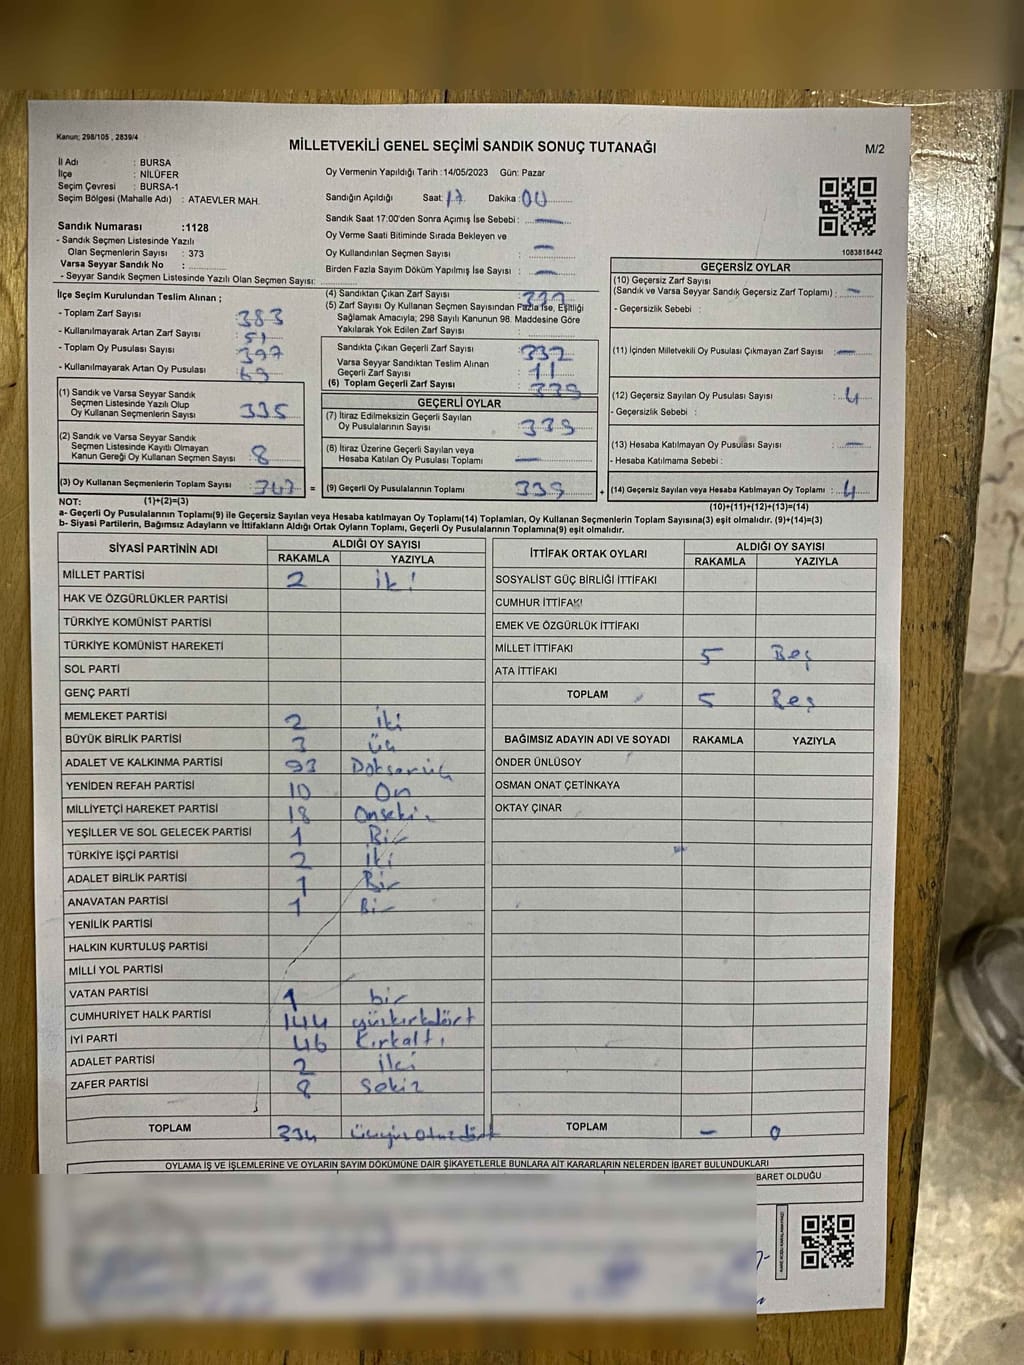 Kanun; 298/105 , 2839/4
MİLLETVEKİLİ GENEL SEÇİMİ SANDIK SONUÇ TUTANAĞI
M/2
İl Adı : BURSA
İlçe : NİLÜFER
Seçim Çevresi : BURSA-1
Seçim Bölgesi (Mahalle Adı) : ATAEVLER MAH.
Sandık Numarası :1128
- Sandık Seçmen Listesinde Yazılı
Olan Seçmenlerin Sayısı : 373
Varsa Seyyar Sandık No :
- Seyyar Sandık Seçmen Listesinde Yazılı Olan Seçmen Sayısı:
Oy Vermenin Yapıldığı Tarih :14/05/2023 Gün: Pazar
Sandığın Açıldığı Saat: 17 Dakika: 00
Sandık Saat 17:00'den Sonra Açımış İse Sebebi : —
Oy Verme Saati Bitiminde Sırada Bekleyen ve
Oy Kullandırılan Seçmen Sayısı : —
Birden Fazla Sayım Döküm Yapılmış İse Sayısı : —
1083818442
İlçe Seçim Kurulundan Teslim Alınan ;
- Toplam Zarf Sayısı : 383
- Kullanılmayarak Artan Zarf Sayısı : 51
- Toplam Oy Pusulası Sayısı : 397
- Kullanılmayarak Artan Oy Pusulası :
(1) Sandık ve Varsa Seyyar Sandık
Seçmen Listesinde Yazılı Olup
Oy Kullanan Seçmenlerin Sayısı : 335
(2) Sandık ve Varsa Seyyar Sandık
Seçmen Listesinde Kayıtlı Olmayan
Kanun Gereği Oy Kullanan Seçmen Sayısı : 8
(3) Oy Kullanan Seçmenlerin Toplam Sayısı : 343
(4) Sandıktan Çıkan Zarf Sayısı :
(5) Zarf Sayısı Oy Kullanan Seçmen Sayısından Fazla İse, Eşitliği
Sağlamak Amacıyla; 298 Sayılı Kanunun 98. Maddesine Göre
Yakılarak Yok Edilen Zarf Sayısı :
Sandıkta Çıkan Geçerli Zarf Sayısı : 332
Varsa Seyyar Sandıktan Teslim Alınan
Geçerli Zarf Sayısı : 11
(6) Toplam Geçerli Zarf Sayısı : 339
GEÇERLİ OYLAR
(7) İtiraz Edilmeksizin Geçerli Sayılan
Oy Pusulalarının Sayısı : 339
(8) İtiraz Üzerine Geçerli Sayılan veya
Hesaba Katılan Oy Pusulası Toplamı : —
= (9) Geçerli Oy Pusulalarının Toplamı : 339 +
GEÇERSİZ OYLAR
(10) Geçersiz Zarf Sayısı
(Sandık ve Varsa Seyyar Sandık Geçersiz Zarf Toplamı) : —
- Geçersizlik Sebebi :
(11) İçinden Milletvekili Oy Pusulası Çıkmayan Zarf Sayısı : —
(12) Geçersiz Sayılan Oy Pusulası Sayısı : 4
- Geçersizlik Sebebi :
(13) Hesaba Katılmayan Oy Pusulası Sayısı : —
- Hesaba Katılmama Sebebi :
(14) Geçersiz Sayılan veya Hesaba Katılmayan Oy Toplamı : 4
NOT: (1)+(2)=(3) (10)+(11)+(12)+(13)=(14)
a- Geçerli Oy Pusulalarının Toplamı(9) ile Geçersiz Sayılan veya Hesaba katılmayan Oy Toplamı(14) Toplamları, Oy Kullanan Seçmenlerin Toplam Sayısına(3) eşit olmalıdır. (9)+(14)=(3)
b- Siyasi Partilerin, Bağımsız Adayların ve İttifakların Aldığı Ortak Oyların Toplamı, Geçerli Oy Pusulalarının Toplamına(9) eşit olmalıdır.
SİYASİ PARTİNİN ADI ALDIĞI OY SAYISI
RAKAMLA YAZIYLA
MİLLET PARTİSİ 2 iki
HAK VE ÖZGÜRLÜKLER PARTİSİ
TÜRKİYE KOMÜNİST PARTİSİ
TÜRKİYE KOMÜNİST HAREKETİ
SOL PARTİ
GENÇ PARTİ
MEMLEKET PARTİSİ 2 iki
BÜYÜK BİRLİK PARTİSİ 3 üç
ADALET VE KALKINMA PARTİSİ 93 Doksanüç
YENİDEN REFAH PARTİSİ 10 On
MİLLİYETÇİ HAREKET PARTİSİ 18 Onsekiz
YEŞİLLER VE SOL GELECEK PARTİSİ 1 Bir
TÜRKİYE İŞÇİ PARTİSİ 2 iki
ADALET BİRLİK PARTİSİ 1 Bir
ANAVATAN PARTİSİ 1 Bir
YENİLİK PARTİSİ
HALKIN KURTULUŞ PARTİSİ
MİLLİ YOL PARTİSİ
VATAN PARTİSİ 1 bir
CUMHURİYET HALK PARTİSİ 144 yüzkırkdört
İYİ PARTİ 46 Kırkaltı
ADALET PARTİSİ 2 iki
ZAFER PARTİSİ 8 Sekiz
TOPLAM 334 üçyüzotuzdört
İTTİFAK ORTAK OYLARI ALDIĞI OY SAYISI
RAKAMLA YAZIYLA
SOSYALİST GÜÇ BİRLİĞİ İTTİFAKI
CUMHUR İTTİFAKI
EMEK VE ÖZGÜRLÜK İTTİFAKI
MİLLET İTTİFAKI 5 Beş
ATA İTTİFAKI
TOPLAM 5 Beş
BAĞIMSIZ ADAYIN ADI VE SOYADI RAKAMLA YAZIYLA
ÖNDER ÜNLÜSOY
OSMAN ONAT ÇETİNKAYA
OKTAY ÇINAR
TOPLAM — 0
OYLAMA İŞ VE İŞLEMLERİNE VE OYLARIN SAYIM DÖKÜMÜNE DAİR ŞİKAYETLERLE BUNLARA AİT KARARLARIN NELERDEN İBARET BULUNDUKLARI
BARET OLDUĞU